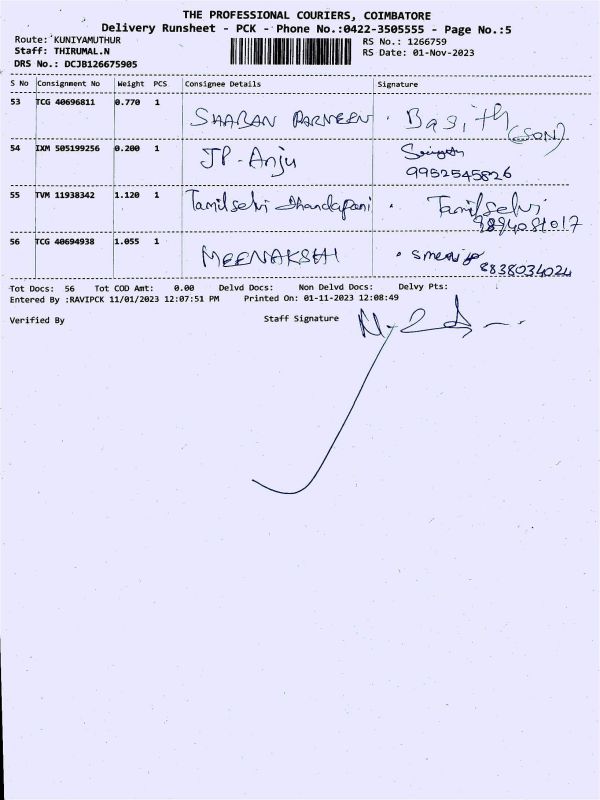 THE PROFESSIONAL COURIERS, COIMBATORE
Delivery Runsheet - PCK - Phone No.:0422-3505555 - Page No.:5
Route: KUNIYAMUTHUR RS No.: 1266759
Staff: THIRUMAL.N RS Date: 01-Nov-2023
DRS No.: DCJB126675905
S No Consignment No Weight PCS Consignee Details Signature
53 TCG 40696811 0.770 1 SHABAN PARVEEN Basith (SON)
54 IXM 505199256 0.200 1 JP-Anju
9952545826
55 TVM 11938342 1.120 1 Tamilselvi Dhandapani Tamilselvi
9894081017
56 TCG 40694938 1.055 1 MEENAKSHI
8838034024
Tot Docs: 56 Tot COD Amt: 0.00 Delvd Docs: Non Delvd Docs: Delvy Pts:
Entered By :RAVIPCK 11/01/2023 12:07:51 PM Printed On: 01-11-2023 12:08:49
Verified By Staff Signature